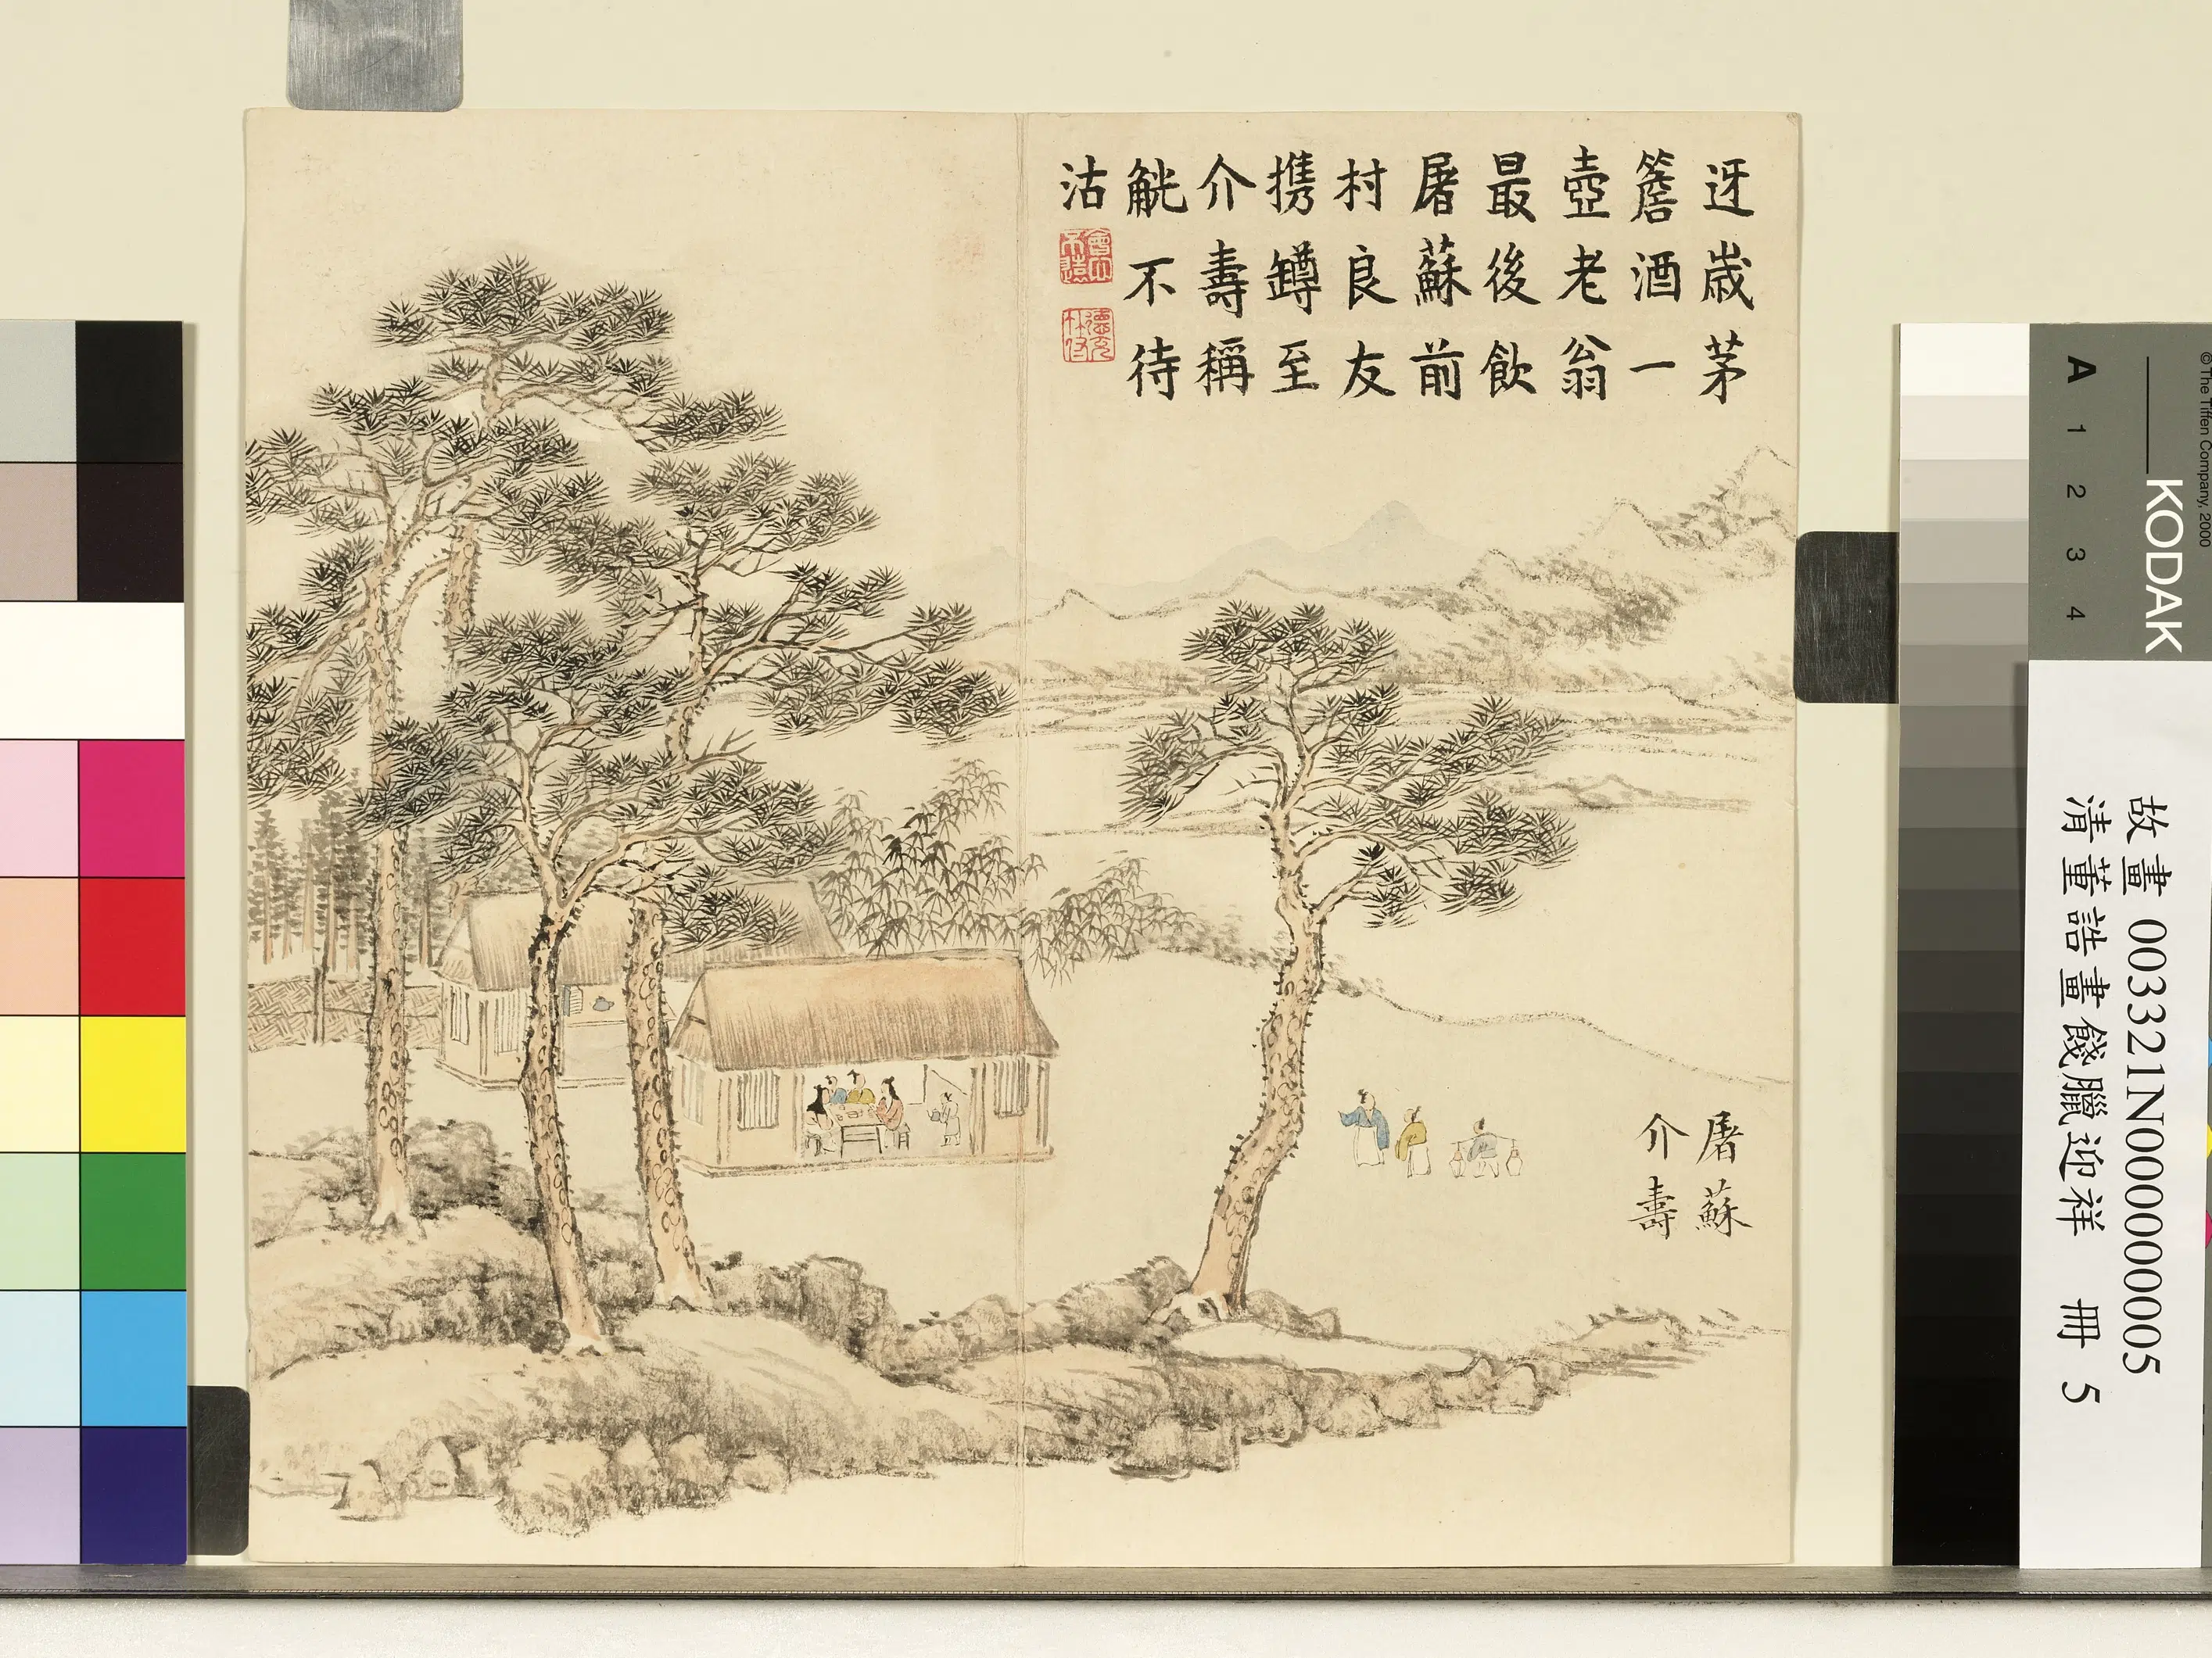 迓歲茅
簷酒一
壺老翁
最後飲
屠蘇前
村良友
攜罇至
介壽稱
觥不待
沽
屠蘇
介壽
故畫 003321N000000005
清董誥畫餞臘迎祥 冊 5
KODAK
A 1 2 3 4
© The Tiffen Company, 2000